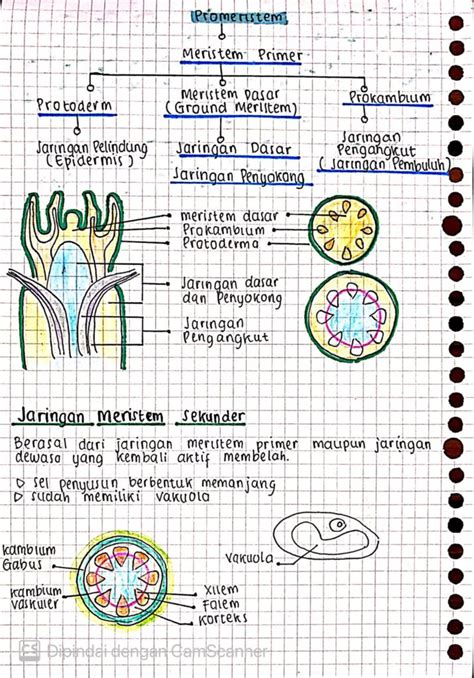 Promeristem
Meristem Primer
Protoderm
Meristem Dasar
(Ground Meristem)
Prokambium
Jaringan Pelindung
(Epidermis)
Jaringan Dasar
Jaringan Penyokong
Jaringan
Pengangkut
(Jaringan Pembuluh)
meristem dasar
Prokambium
Protoderma
Jaringan dasar
dan Penyokong
Jaringan
Pengangkut
Jaringan Meristem Sekunder
Berasal dari jaringan meristem primer maupun jaringan
dewasa yang kembali aktif membelah.
▷ sel penyusun berbentuk memanjang
▷ sudah memiliki vakuola
kambium
Gabus
kambium
vaskuler
Xilem
Folem
Korteks
vakuola
CS Dipindai dengan CamScanner